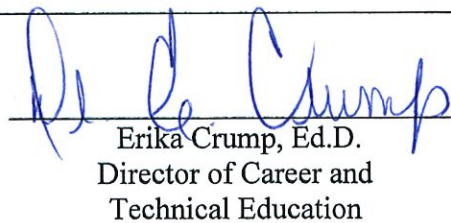 Dr E. Crump
Erika Crump, Ed.D.
Director of Career and
Technical Education